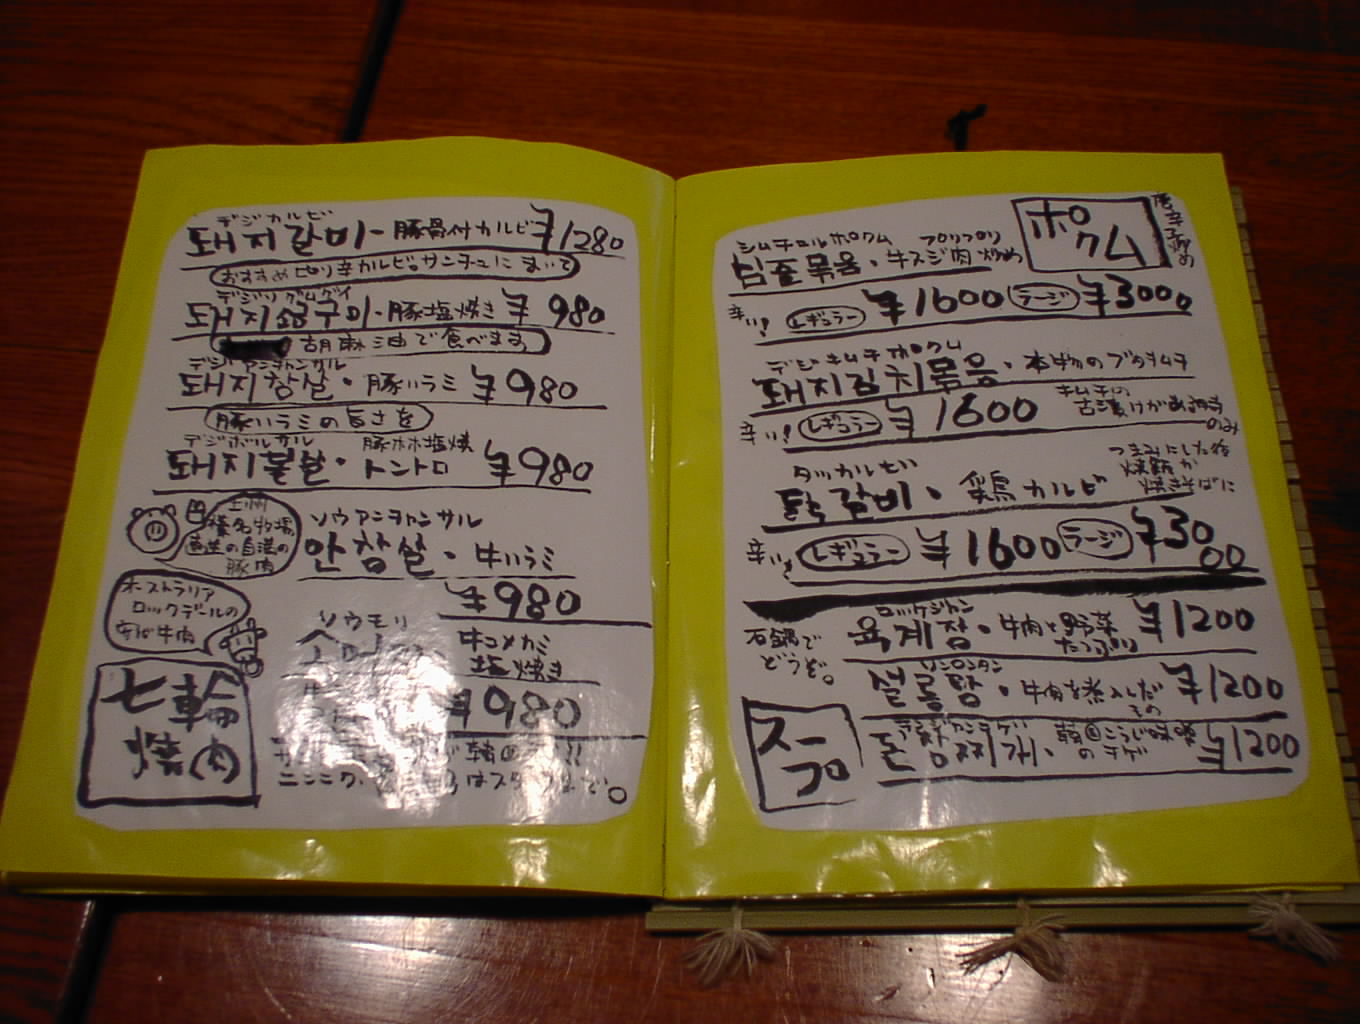 デジカルビ
돼지갈비・豚骨付カルビ ¥1280
おすすめピリ辛カルビ。サンチュにまいて
돼지소금구이・豚塩焼き ¥980
胡麻油で食べます
デジアンチャンサル
돼지창살・豚ハラミ ¥980
豚ハラミの旨さを
デジボルサル
돼지볼살・トントロ ¥980
上州
榛名牧場
の豚肉
ソウアンチャンサル
안창살・牛ハラミ
¥980
オーストラリア
ロックデールの
牛肉
ソウモリ
牛コメカミ
塩焼き
¥980
七輪
焼肉
ポクム
シムチュルポクム プリプリ
볶음・牛スジ肉炒め
辛い! レギュラー ¥1600 ラージ ¥3000
デジキムチポクム
돼지김치볶음・本物のブタキムチ
辛い! レギュラー ¥1600
キムチの
古漬けがある時
のみ
タッカルビ
닭갈비・鶏カルビ
つまみにした後
焼飯か
焼きそばに
辛い! レギュラー ¥1600 ラージ ¥3000
石鍋で
どうぞ。
육계장・牛肉と野菜たっぷり ¥1200
설롱탕・牛肉を煮込んだ ¥1200
テンジャンチゲ
된장찌개・韓国こうじ味噌のチゲ ¥1200
スープ